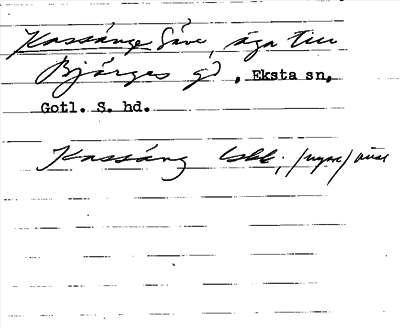 Kassänge Säve, äga till
Bjärges gd, Eksta sn,
Gotl. S. hd.
Kassäng